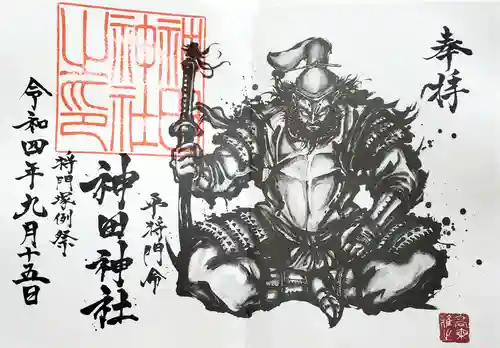 奉拝
平将門命
神田神社
将門塚例祭
令和四年九月十五日
神田
神社
之印